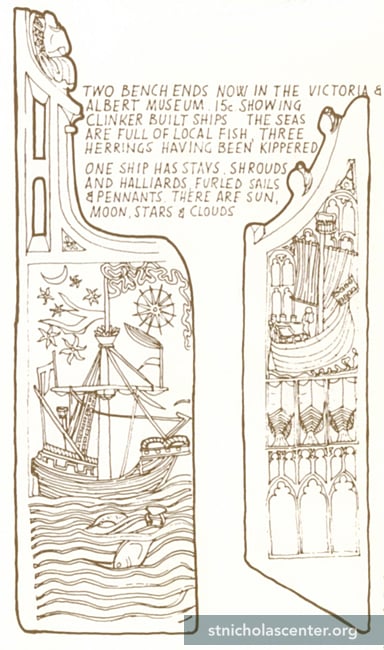 TWO BENCH ENDS NOW IN THE VICTORIA &
ALBERT MUSEUM. 15c SHOWING
CLINKER BUILT SHIPS THE SEAS
ARE FULL OF LOCAL FISH, THREE
HERRINGS HAVING BEEN KIPPERED
ONE SHIP HAS STAYS, SHROUDS
AND HALLIARDS, FURLED SAILS
& PENNANTS. THERE ARE SUN,
MOON, STARS & CLOUDS
stnicholascenter.org